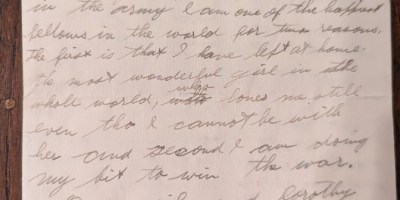 in the army I am one of the happiest
fellows in the world for two reasons.
The first is that I have left at home
the most wonderful girl in the
whole world, who loves me still
even tho I cannot be with
her and second I am doing
my bit to win the war.
Dorothy